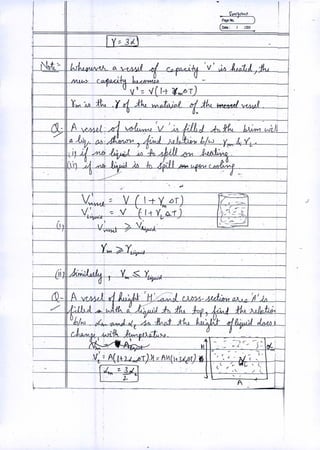 Page No.
Date
γ = 3α
Note:- Whenever a vessel of capacity 'V' is heated, the
new capacity becomes
V' = V(1+ γmΔT)
γm is the γ of the material of the vessel.
Q. A vessel of volume V is filled to the brim with
a liq. as shown, find relation b/w γm & γL.
(i) if no liquid is to spill on heating
(ii) if no liquid is to spill upon cooling
V'vessel = V (1+γmΔT)
V'liquid = V (1+γLΔT)
(i) V'vessel ≥ V'liquid
γm ≥ γliquid
(ii) Similarly, γm ≤ γliquid
Q- A vessel of height 'H' and cross-section area 'A' is
filled with a liquid to the top, find the relation
b/w αm and γL so that the height of liquid does
change with temperature.
H
V'L = A(1+2αmΔT)H = AH(1+3αLΔT)
αm = 3αL
2
A